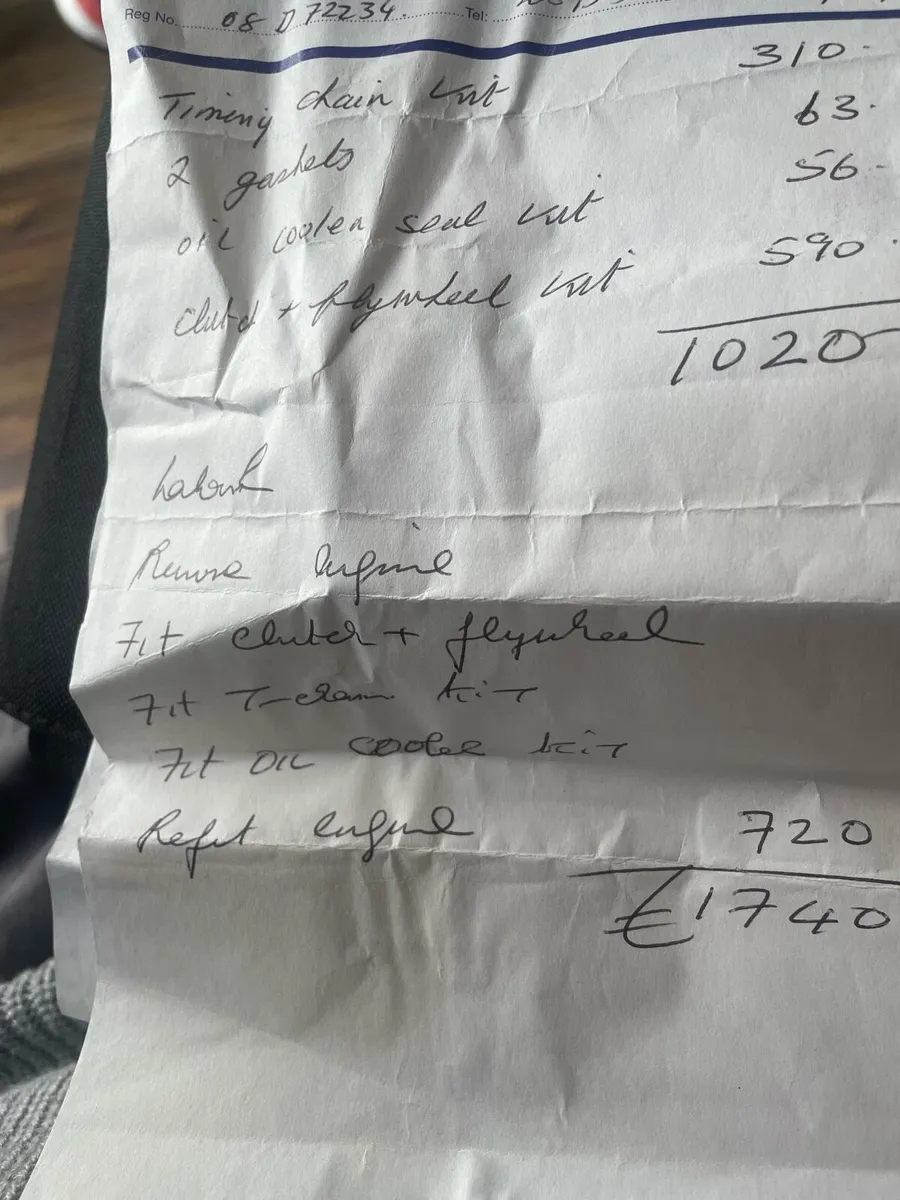 Reg No. 08 D 72234. Tel:
Timing chain kit 310.
2 gaskets 63.
oil cooler seal kit 56-
clutch + flywheel kit 590.
1020
Labour
Remove Engine
Fit clutch + flywheel
Fit T-chain kit
Fit OIL cooler kit
Refit engine 720
€1740